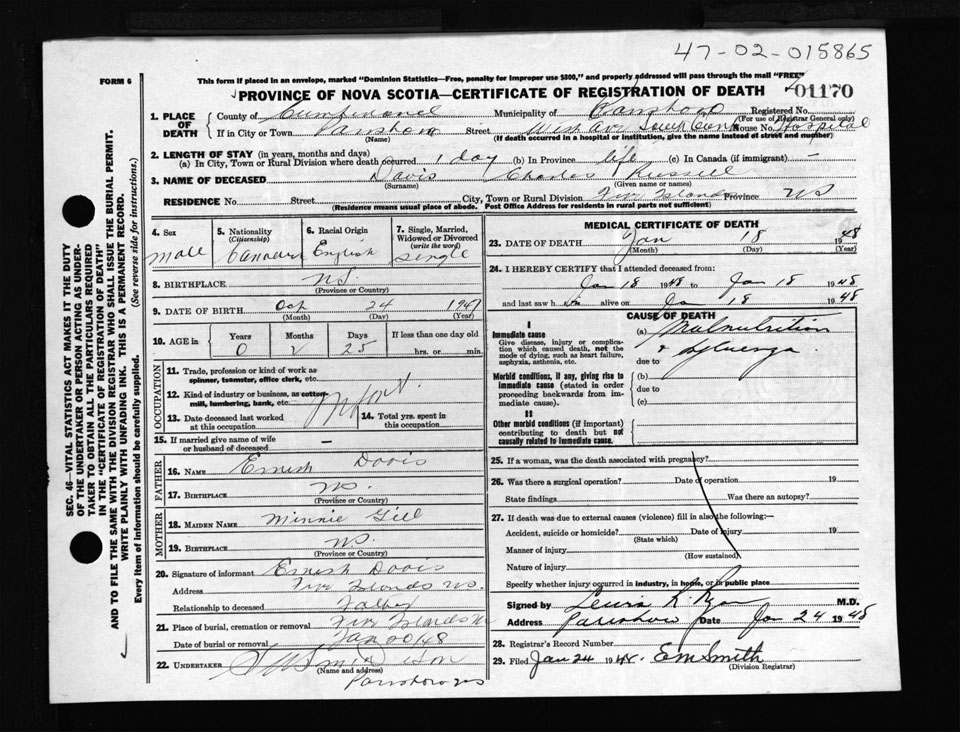 47-02-015865
FORM 6
This form if placed in an envelope, marked "Dominion Statistics—Free, penalty for improper use $300," and properly addressed will pass through the mail "FREE"
PROVINCE OF NOVA SCOTIA—CERTIFICATE OF REGISTRATION OF DEATH 01170
1. PLACE OF DEATH
County of Cumberland Municipality of Parrsboro Registered No.
(For use of Registrar General only)
If in City or Town Parrsboro Street House No. Hospital
(Name) (If death occurred in a hospital or institution, give the name instead of street and number)
2. LENGTH OF STAY (in years, months and days)
(a) In City, Town or Rural Division where death occurred 1 day (b) In Province life (c) In Canada (if immigrant) —
3. NAME OF DECEASED Davis Charles Russell
(Surname) (Given name or names)
RESIDENCE No. Street City, Town or Rural Division Five Islands Province NS
(Residence means usual place of abode. Post Office Address for residents in rural parts not sufficient)
4. Sex
male
5. Nationality
(Citizenship)
Canadian
6. Racial Origin
English
7. Single, Married, Widowed or Divorced
(write the word)
Single
8. BIRTHPLACE NS
(Province or Country)
9. DATE OF BIRTH Oct 24 1947
(Month) (Day)
10. AGE in Years Months Days If less than one day old
0 2 25 hrs. or min.
OCCUPATION
11. Trade, profession or kind of work as spinner, teamster, office clerk, etc.
12. Kind of industry or business, as cotton mill, lumbering, bank, etc.
Infant
13. Date deceased last worked at this occupation
14. Total yrs. spent in this occupation
15. If married give name of wife or husband of deceased —
FATHER
16. NAME Ernest Davis
17. BIRTHPLACE NS.
(Province or Country)
MOTHER
18. MAIDEN NAME Minnie Gill
19. BIRTHPLACE NS.
(Province or Country)
20. Signature of informant Ernest Davis
Address Five Islands NS.
Relationship to deceased Father
21. Place of burial, cremation or removal Five Islands NS
Date of burial or removal Jan 48
22. UNDERTAKER Smith Son
(Name and address)
Parrsboro NS
MEDICAL CERTIFICATE OF DEATH
23. DATE OF DEATH Jan 18 1948
(Month) (Day)
24. I HEREBY CERTIFY that I attended deceased from:
Jan 18 1948 to Jan 18 1948
and last saw him alive on Jan 18 1948
CAUSE OF DEATH
I
Immediate cause
Give disease, injury or complication which caused death, not the mode of dying, such as heart failure, asphyxia, asthenia, etc.
(a) Malnutrition
due to
Morbid conditions, if any, giving rise to immediate cause (stated in order proceeding backwards from immediate cause).
(b)
due to
(c)
II
Other morbid conditions (if important) contributing to death but not causally related to immediate cause.
25. If a woman, was the death associated with pregnancy?
26. Was there a surgical operation? Date of operation 19
State findings Was there an autopsy?
27. If death was due to external causes (violence) fill in also the following:—
Accident, suicide or homicide? Date of injury 19
(State which)
Manner of injury
(How sustained)
Nature of injury
Specify whether injury occurred in industry, in home, or in public place
Signed by Lewis K. Ryan M.D.
Address Parrsboro Date Jan 24 1948
28. Registrar's Record Number
29. Filed Jan 24 1948. E M Smith
(Division Registrar)
SEC. 46—VITAL STATISTICS ACT MAKES IT THE DUTY
OF THE UNDERTAKER OR PERSON ACTING AS UNDER-
TAKER TO OBTAIN ALL THE PARTICULARS REQUIRED
IN THE "CERTIFICATE OF REGISTRATION OF DEATH"
AND TO FILE THE SAME WITH THE DIVISION REGISTRAR WHO SHALL ISSUE THE BURIAL PERMIT.
WRITE PLAINLY WITH UNFADING INK. THIS IS A PERMANENT RECORD.
Every item of information should be carefully supplied. (See reverse side for instructions.)